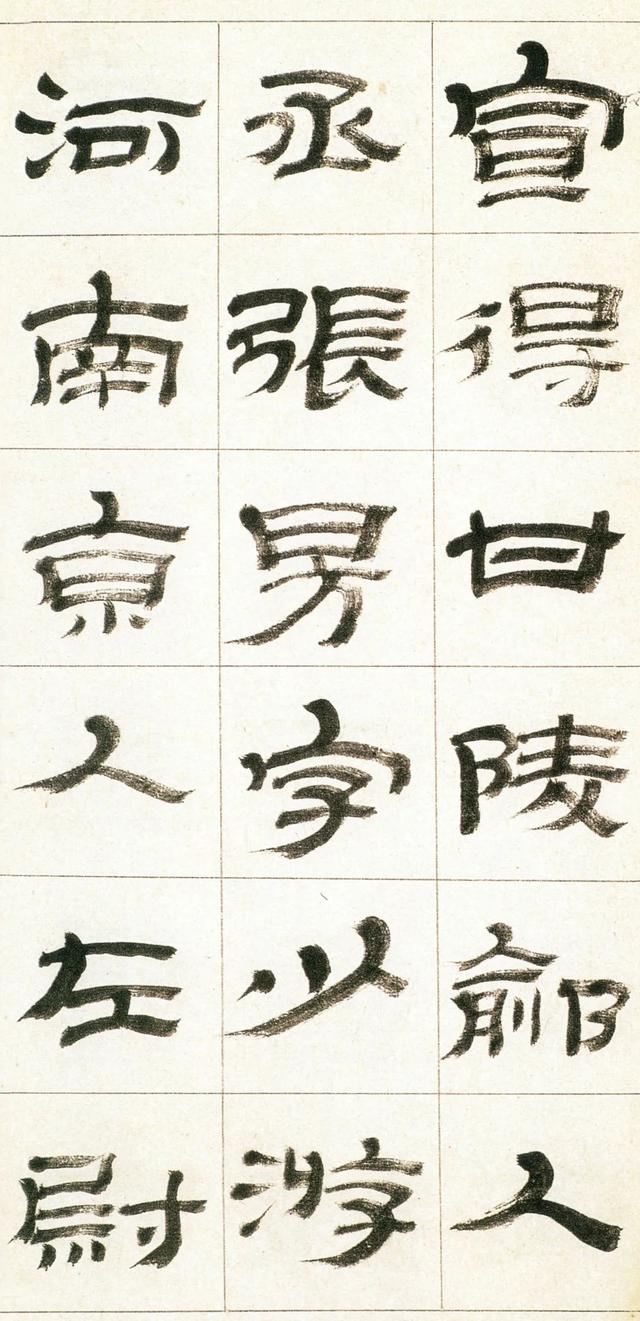 宣得甘陵鄃人
丞張昉字少游
河南京人左尉